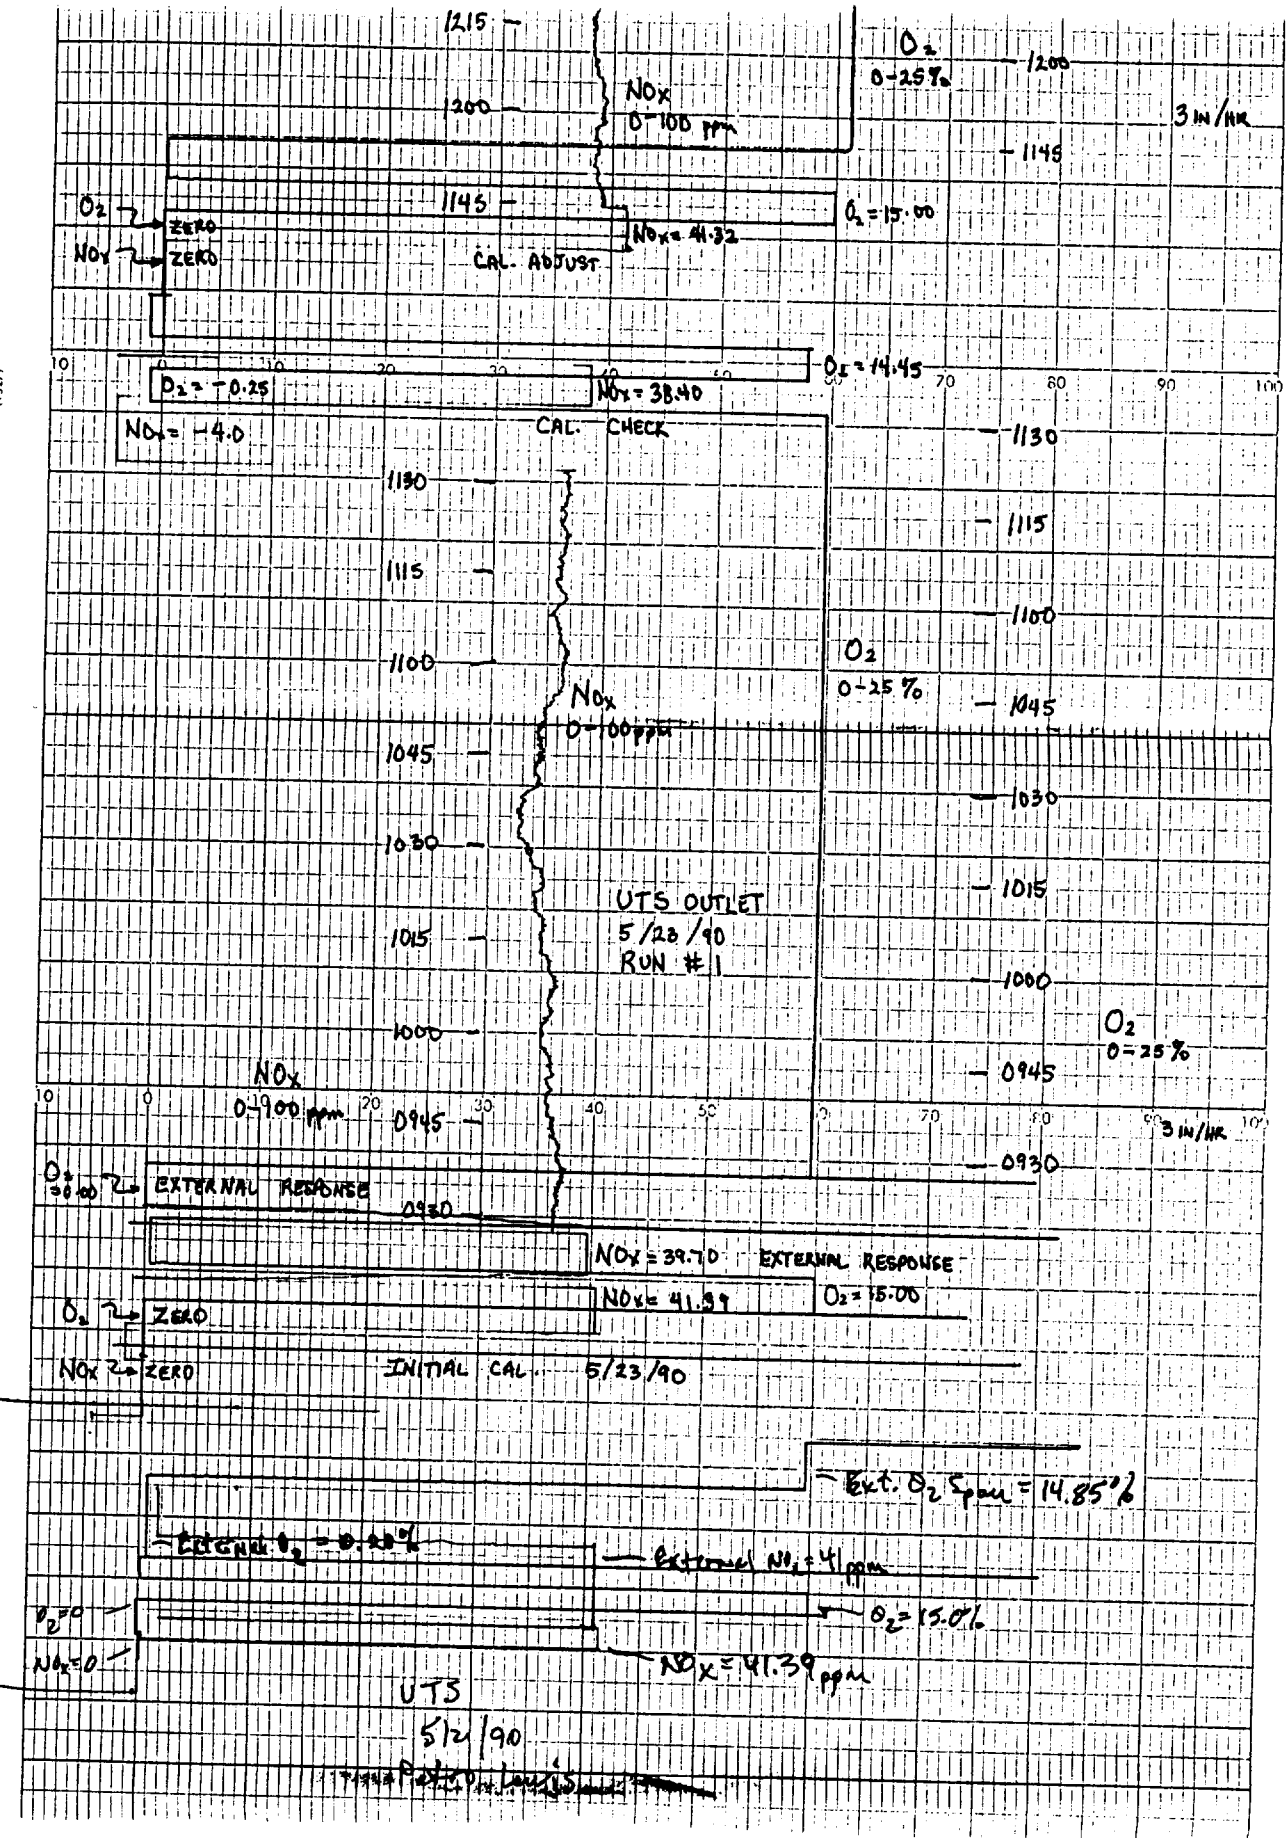 1215
O2
0-25%
1200
NOx
0-100 ppm
1200
3 IN/HR
1145
1145
O2
ZERO
O2 = 15.00
NOx = 41.32
NOx
ZERO
CAL. ADJUST
10 0 10 20 30 40 50 60 70 80 90 100
O2 = 14.45
O2 = -0.25
NOx = 38.40
NOx = -4.0
CAL. CHECK
1130
1130
1115
1115
1100
1100
O2
0-25%
NOx
0-100 ppm
1045
1045
1030
1030
1015
UTS OUTLET
5/23/90
RUN #1
1015
1000
1000
O2
0-25%
0945
NOx
0-100 ppm
10 0 10 20 30 40 50 60 70 80 90 100
0945
3 IN/HR
0930
O2
=0.00
EXTERNAL RESPONSE
0930
NOx = 39.70 EXTERNAL RESPONSE
NOx = 41.39
O2 = 15.00
O2
ZERO
NOx
ZERO
INITIAL CAL. 5/23/90
Ext. O2 Span = 14.85%
External O2 = 0.20%
External NOx = 41 ppm
O2=0
O2 = 15.0%
NOx=0
NOx = 41.39 ppm
UTS
5/21/90